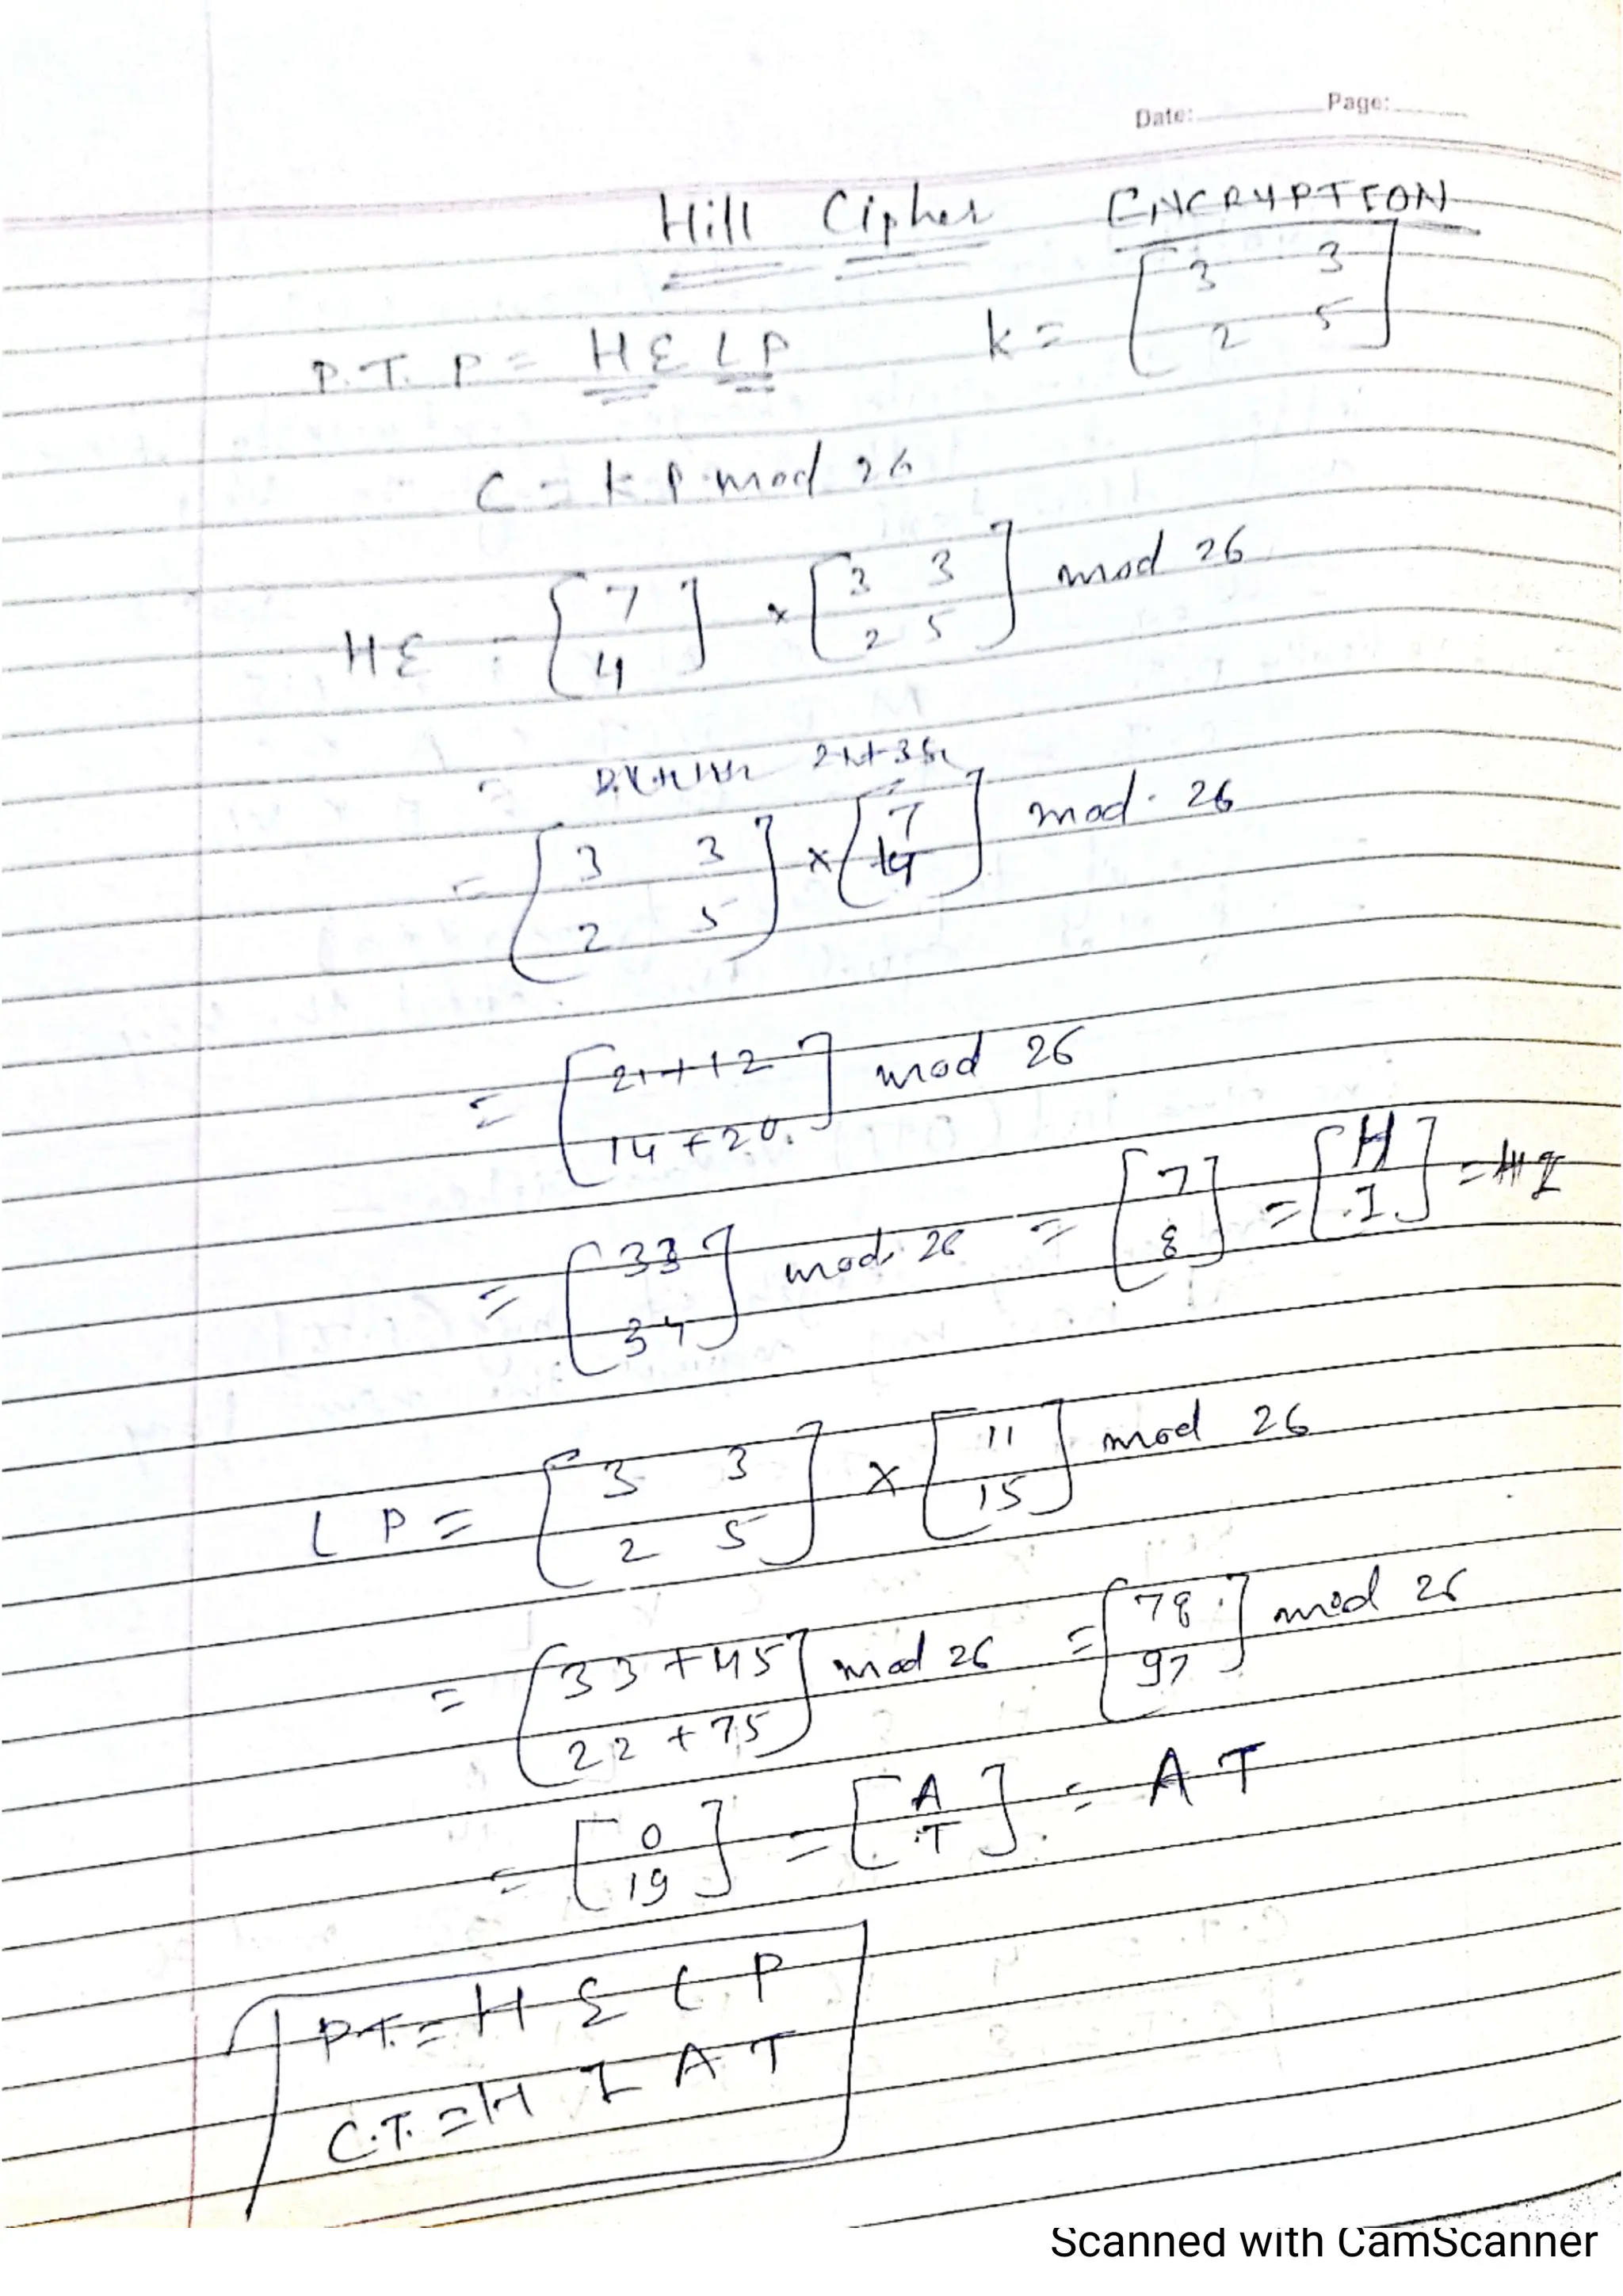 Date: Page:
Hill Cipher ENCRYPTION
P.T. P = HELP K = [3 3
2 5]
C = K P mod 26
HE = [7
4] × [3 3
2 5] mod 26
=
= [3 3
2 5] × [7
4] mod 26
= [21+12
14+20] mod 26
= [33
34] mod 26 = [7
8] = [H
I] = HI
LP = [3 3
2 5] × [11
15] mod 26
= [33+45
22+75] mod 26 = [78
97] mod 26
= [0
19] = [A
T] = A T
P.T. = H E L P
C.T. = H I A T
Scanned with CamScanner